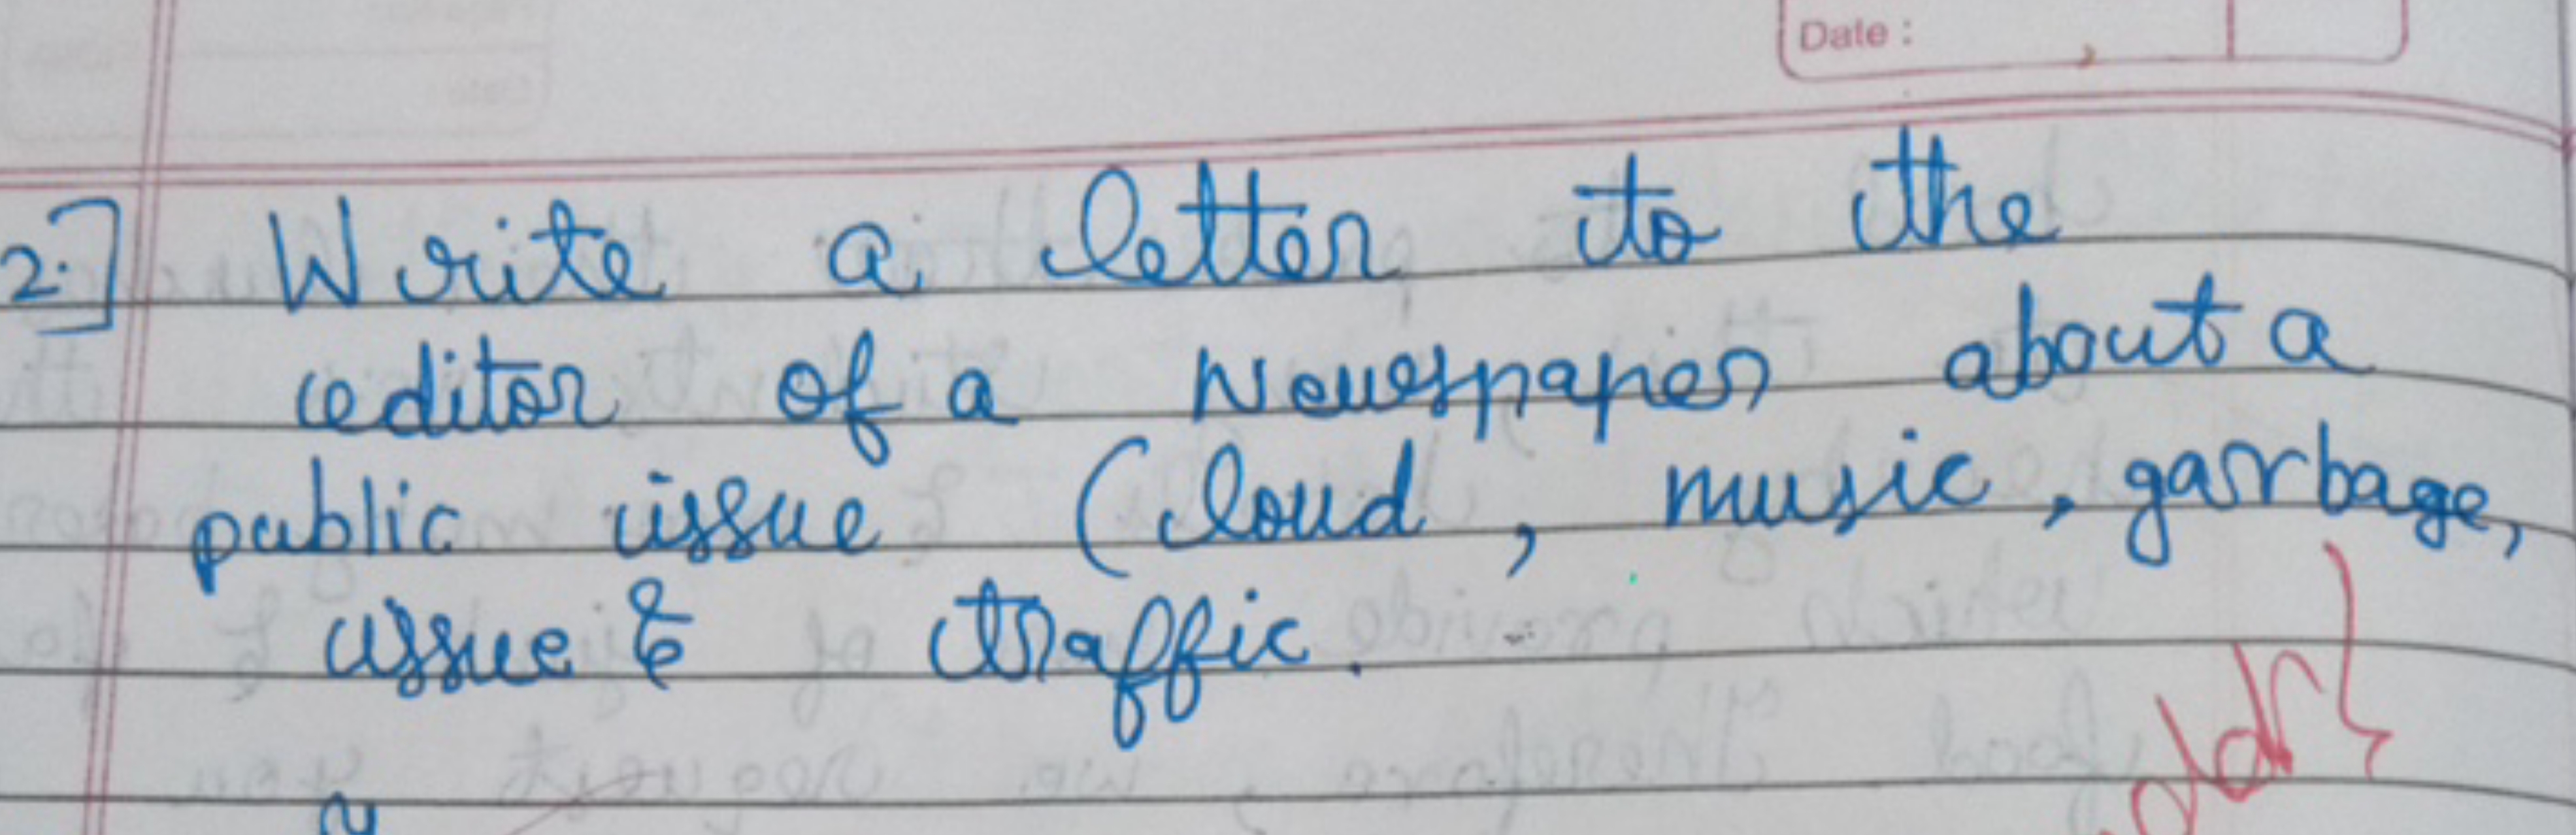 Date :
2.] Write a letter to the
editor of a Newspaper about a
public issue (loud, music, garbage,
issue & traffic.